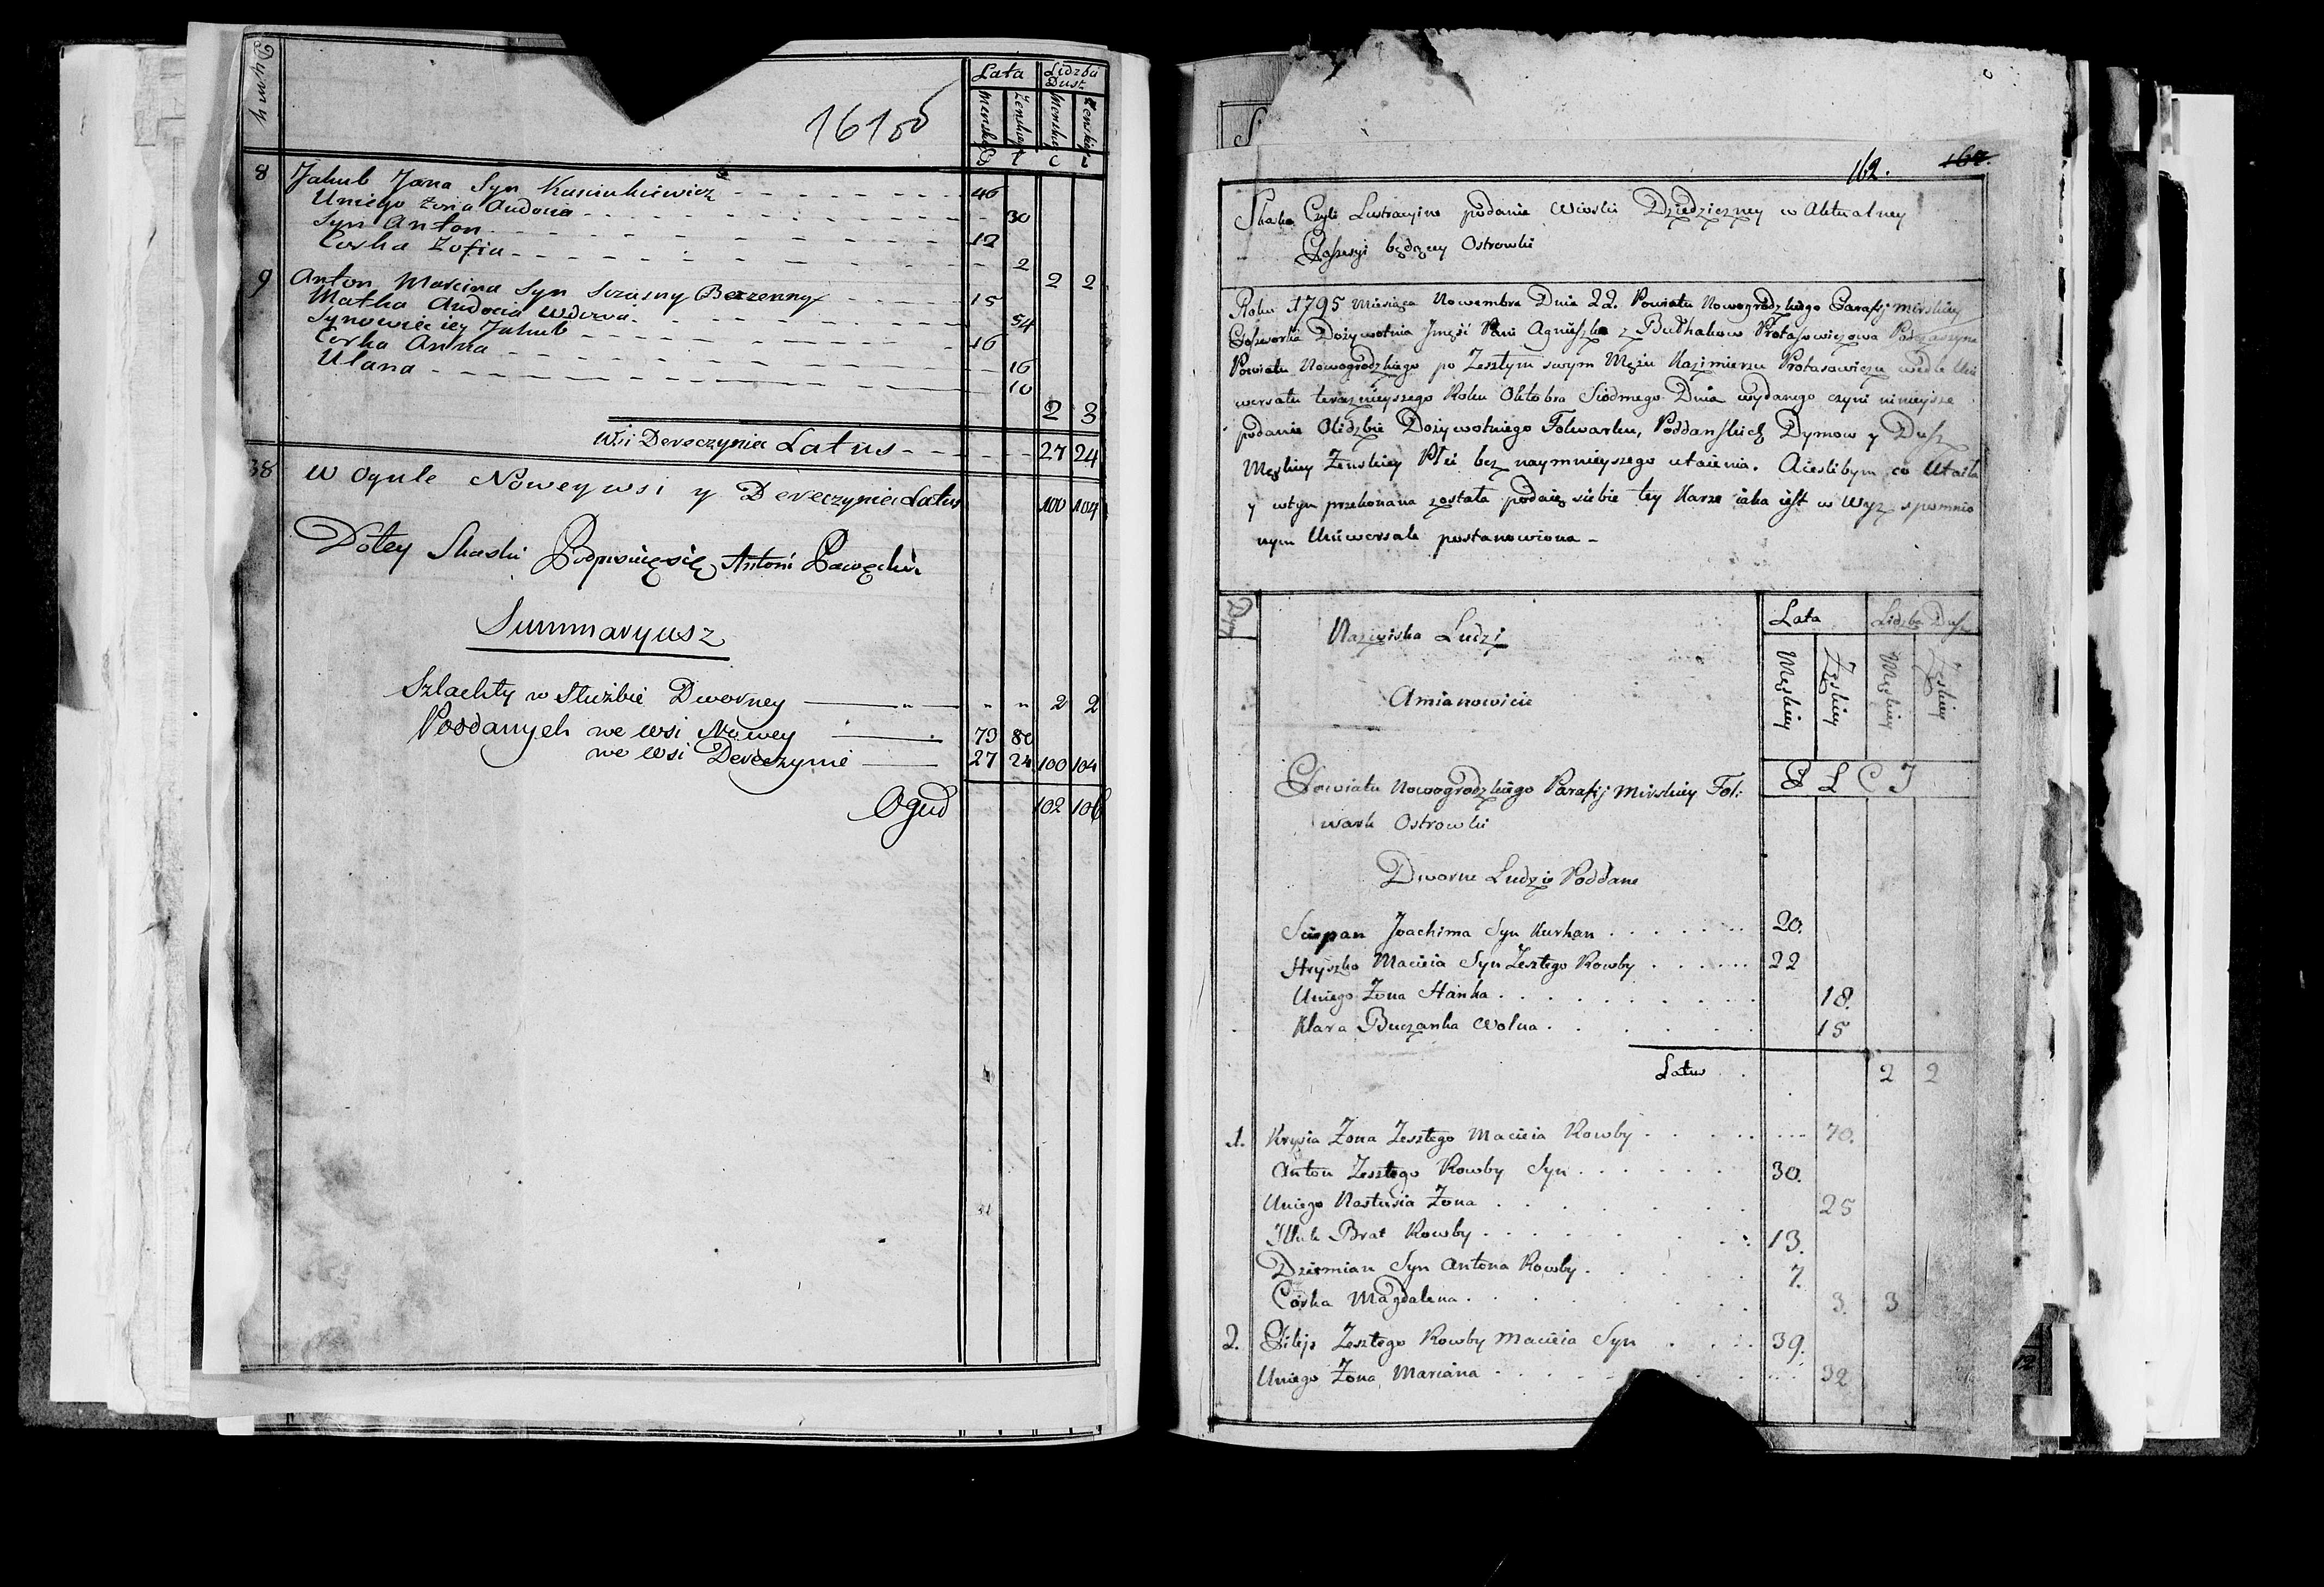 Dymy
Lata
Lidzba Dusz
Męnskey
Zenskey
Męnskey
Zenskiey
161 об
P Ł C I
8 Jakub Jana Syn Kusiukiewicz 46
Uniego żona Audocia 30
Syn Anton 12
Corka Zofia 2
2 2
9 Anton Marcina Syn Sczasny Bezzenny 15
Matka Audocia Wdowa 54
Synowiec iey Jakub 16
Corka Anna 16
Ulana 10
2 3
Wsi Dereczynia Latus 27 24
38 W ogule Noweywsi y Dereczynia Latus 100 104
Dotey Skaski Podpisuięsię Antoni
Summaryusz
Szlachty w Służbie Dworney 2 2
Poddanych we wsi Nowey 73 80
we wsi Dereczynie 27 24 100 104
Oguł 102 106
162. 167.
Skaska Czyli Lustracyine podanie Wioski Dziedziczney w Aktualney
Possesyi będącey Ostrowki
Roku 1795 Miesiąca Nowembra Dnia 22. Powiatu Nowogrodzkiego Parafij Mirskiey
Possesorka Dożywotnia Jmość Pani Agnieszka z Bułhakow Protasowiczowa Podczaszyna
Powiatu Nowogrodzkiego po Zeszłym swym Mężu Kazimierzu Protasowiczu wedle Uni
wersału teraznieyszego Roku Oktobra Siodmego Dnia wydanego czyni ninieysze
podanie Olidzbie Dożywotniego Folwarku, Poddanskich Dymow y Dusz
Męskiey Zenskiey Płci bez naymnieyszego utaienia. Aieslibym co Utaiła
y wtym przekonana została podaię siebie tey Karze iaka iest w Wyz spomnio
nym Uniwersale postanowiona -
Dym
Nazwiska Ludzi
Amianowicie
Lata
Lidzba Dusz
Męskiey
Żęskiey
Męskiey
Żęskiey
P Ł C I
Powiatu Nowogrodzkiego Parafij Mirskiey Fol:
wark Ostrowki
Dworne Ludzie Poddane
Sciepan Joachima Syn Kurhan 20.
Hryszko Macieia Syn Zeszłego Kowby 22
Uniego Żona Hanka 18.
Klara Buczanka Wolna 15
Latus 2 2
1. Krysia Żona Zeszłego Macieia Kowby 70.
Anton Zeszłego Kowby Syn 30.
Uniego Nastusia Żona 25
Illuk Brat Kowby 13.
Dziemian Syn Antona Kowby 7.
Corka Magdalena 3. 3
2. Filip Zeszłego Kowby Macieia Syn 39.
Uniego Żona Mariana 32